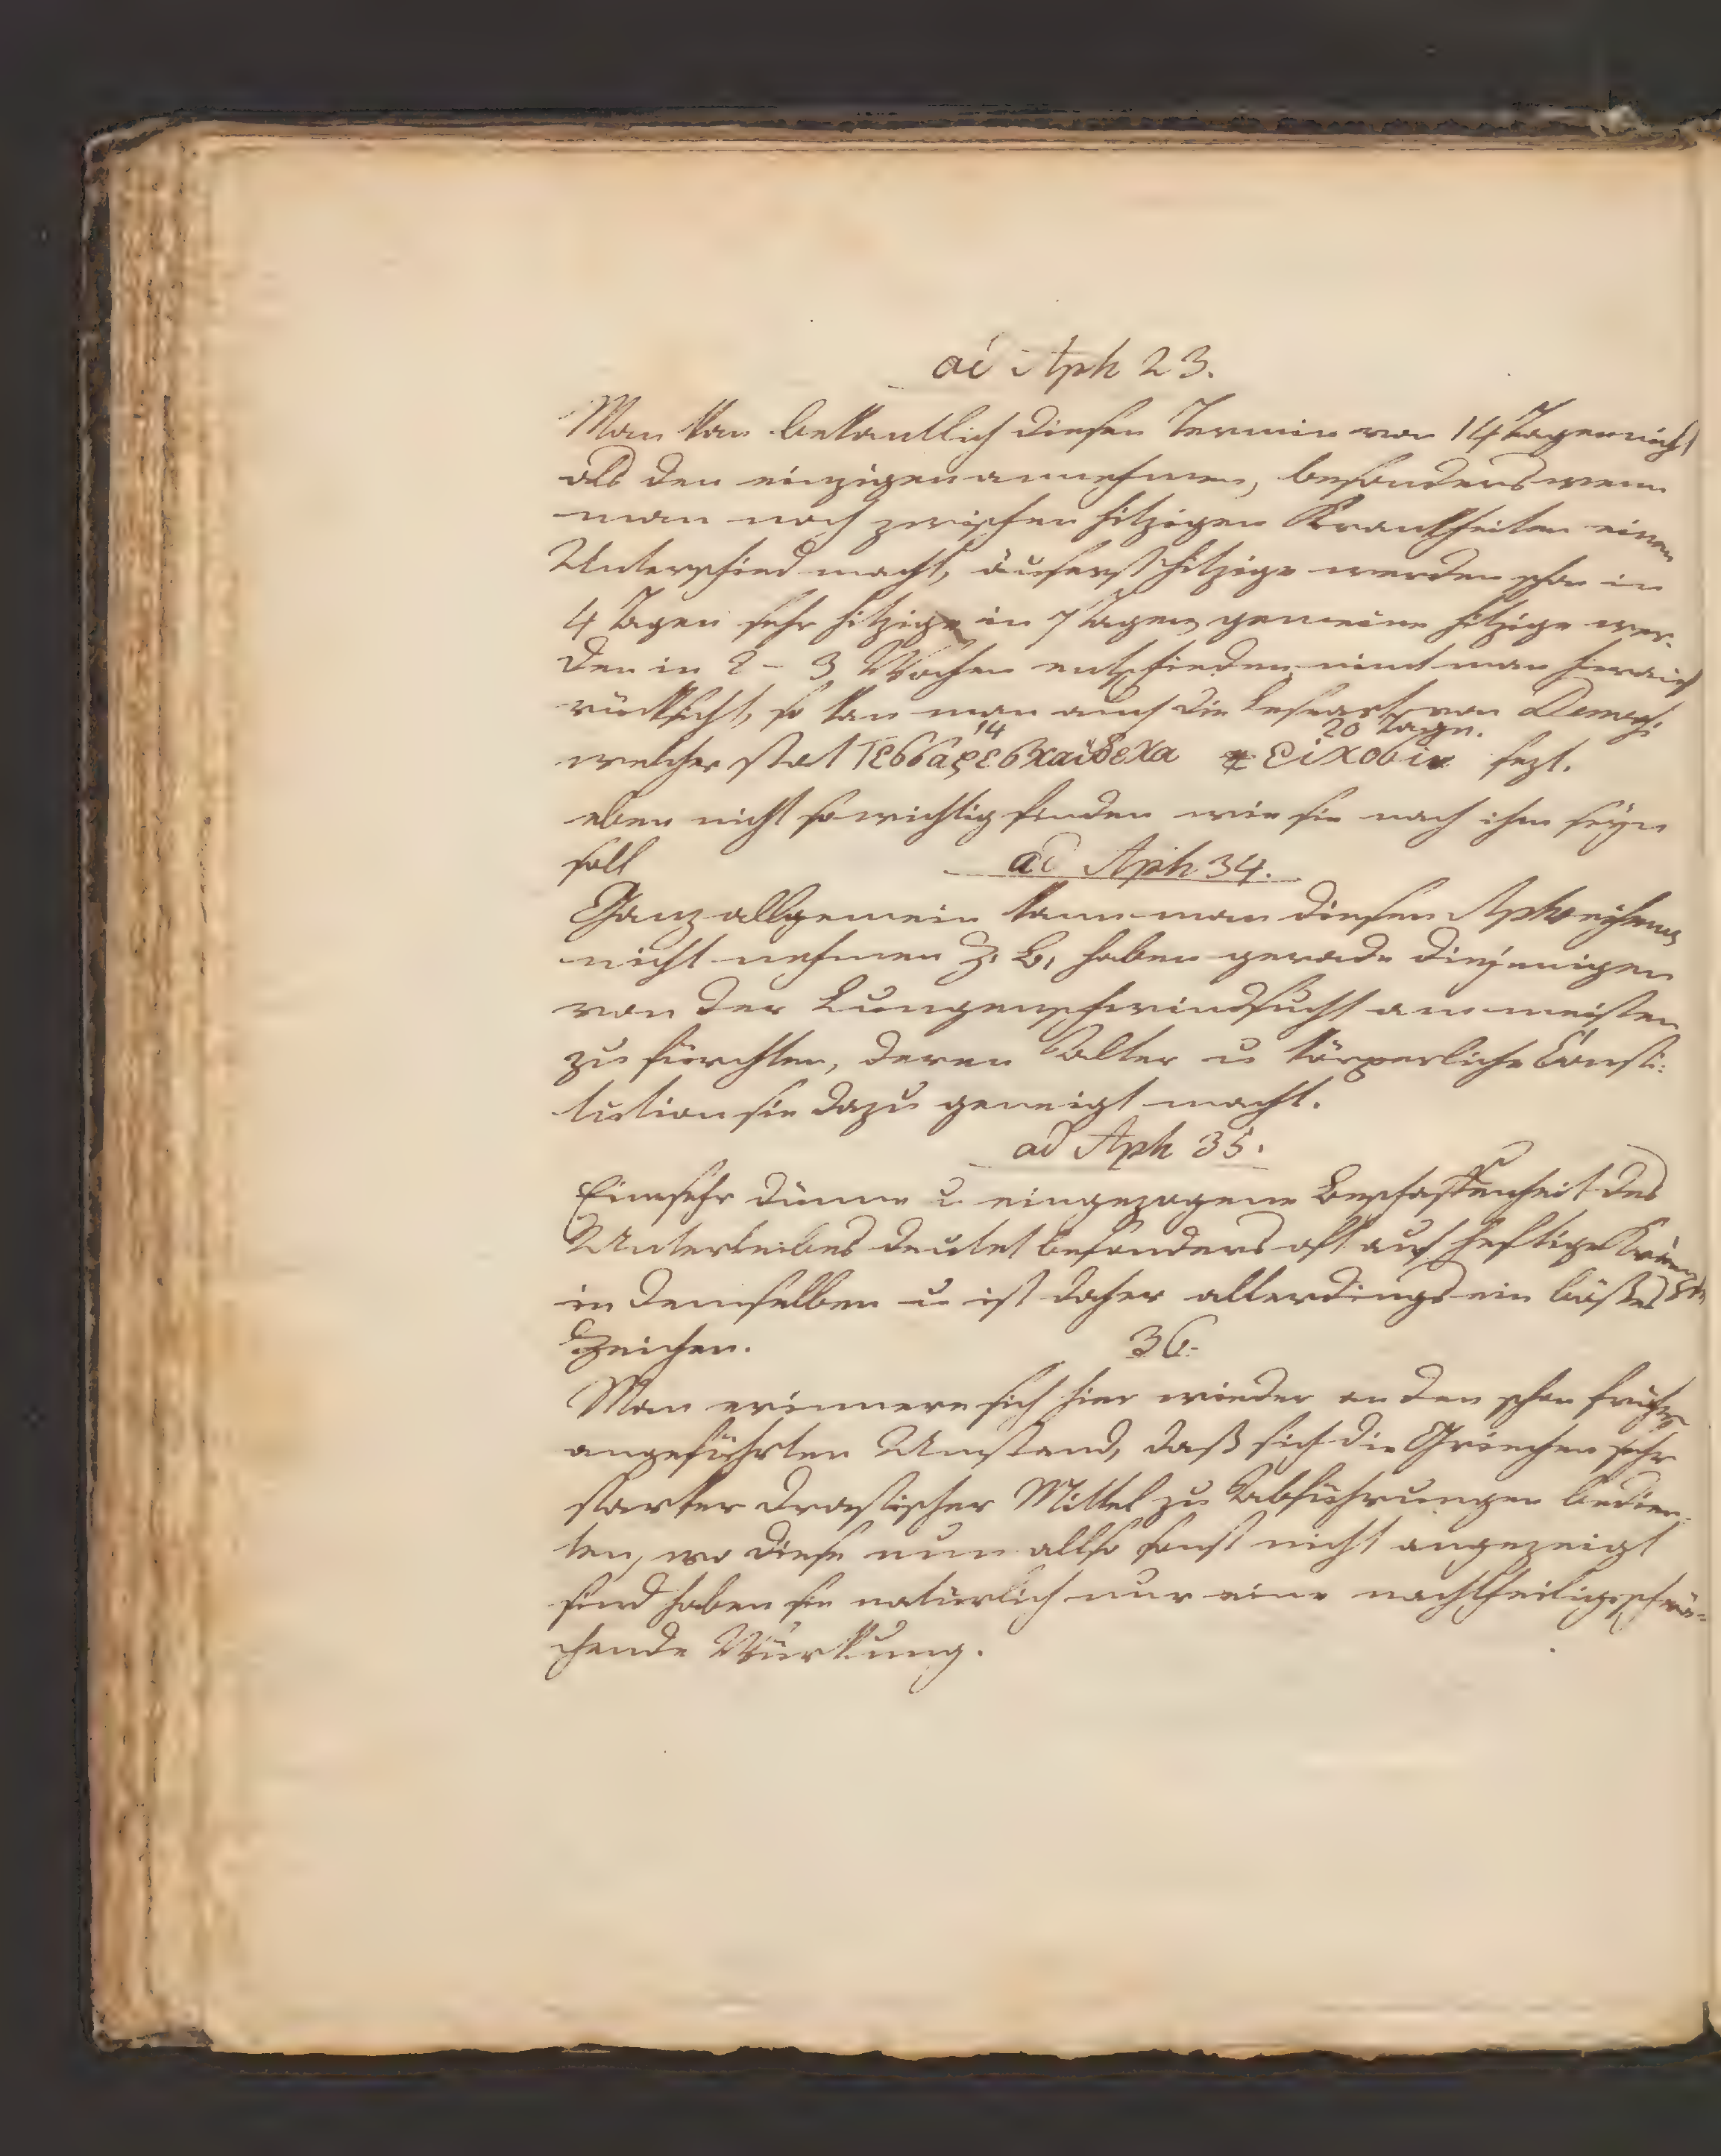 ad Aph 23.
Man kan bekantlich diesen Termin von 14 Tagen nicht
als den einzigen annehmen, besonders wenn
man noch zwischen hitzigen Krankheiten einen
Unterschied macht, äuserst hitzige werden schon in
4 Tagen sehr hitzige in 7 Tagen, gemeine hitzige wer-
den in 2 - 3 Wochen entschieden, nimt man hierauf
rücksicht, so kan man auch die Leseart von
14 20 Tagen.
welcher stat τεσσαρεσκαιδεκα εικοσιν sezt.
eben nicht so wichtig finden wie sie nach ihm seÿn
soll
ad Aph 34.
Ganz allgemein kann man diesen Aphorismus
nicht nehmen z. B. haben gerade diejenigen
von der Lungenschwindsucht am meisten
zu fürchten, deren Alter u körperliche Consti:
tution sie dazu geneigt macht.
ad Aph 35.
Eine sehr dünne u eingezogene Beschaffenheit des
Unterleibes deutet besonders oft auf heftige
in demselben u ist daher allerdings ein böses
Zeichen.
36.
Man erinnere sich hier wieder an den schon früher
angeführten Umstand, daß sich die Griechen sehr
starker drastischer Mittel zu Abführungen bedien-
ten, wo diese nun allso sonst nicht angezeigt
sind haben sie natürlich nur eine nachtheilige schwä-
chende Würkung.